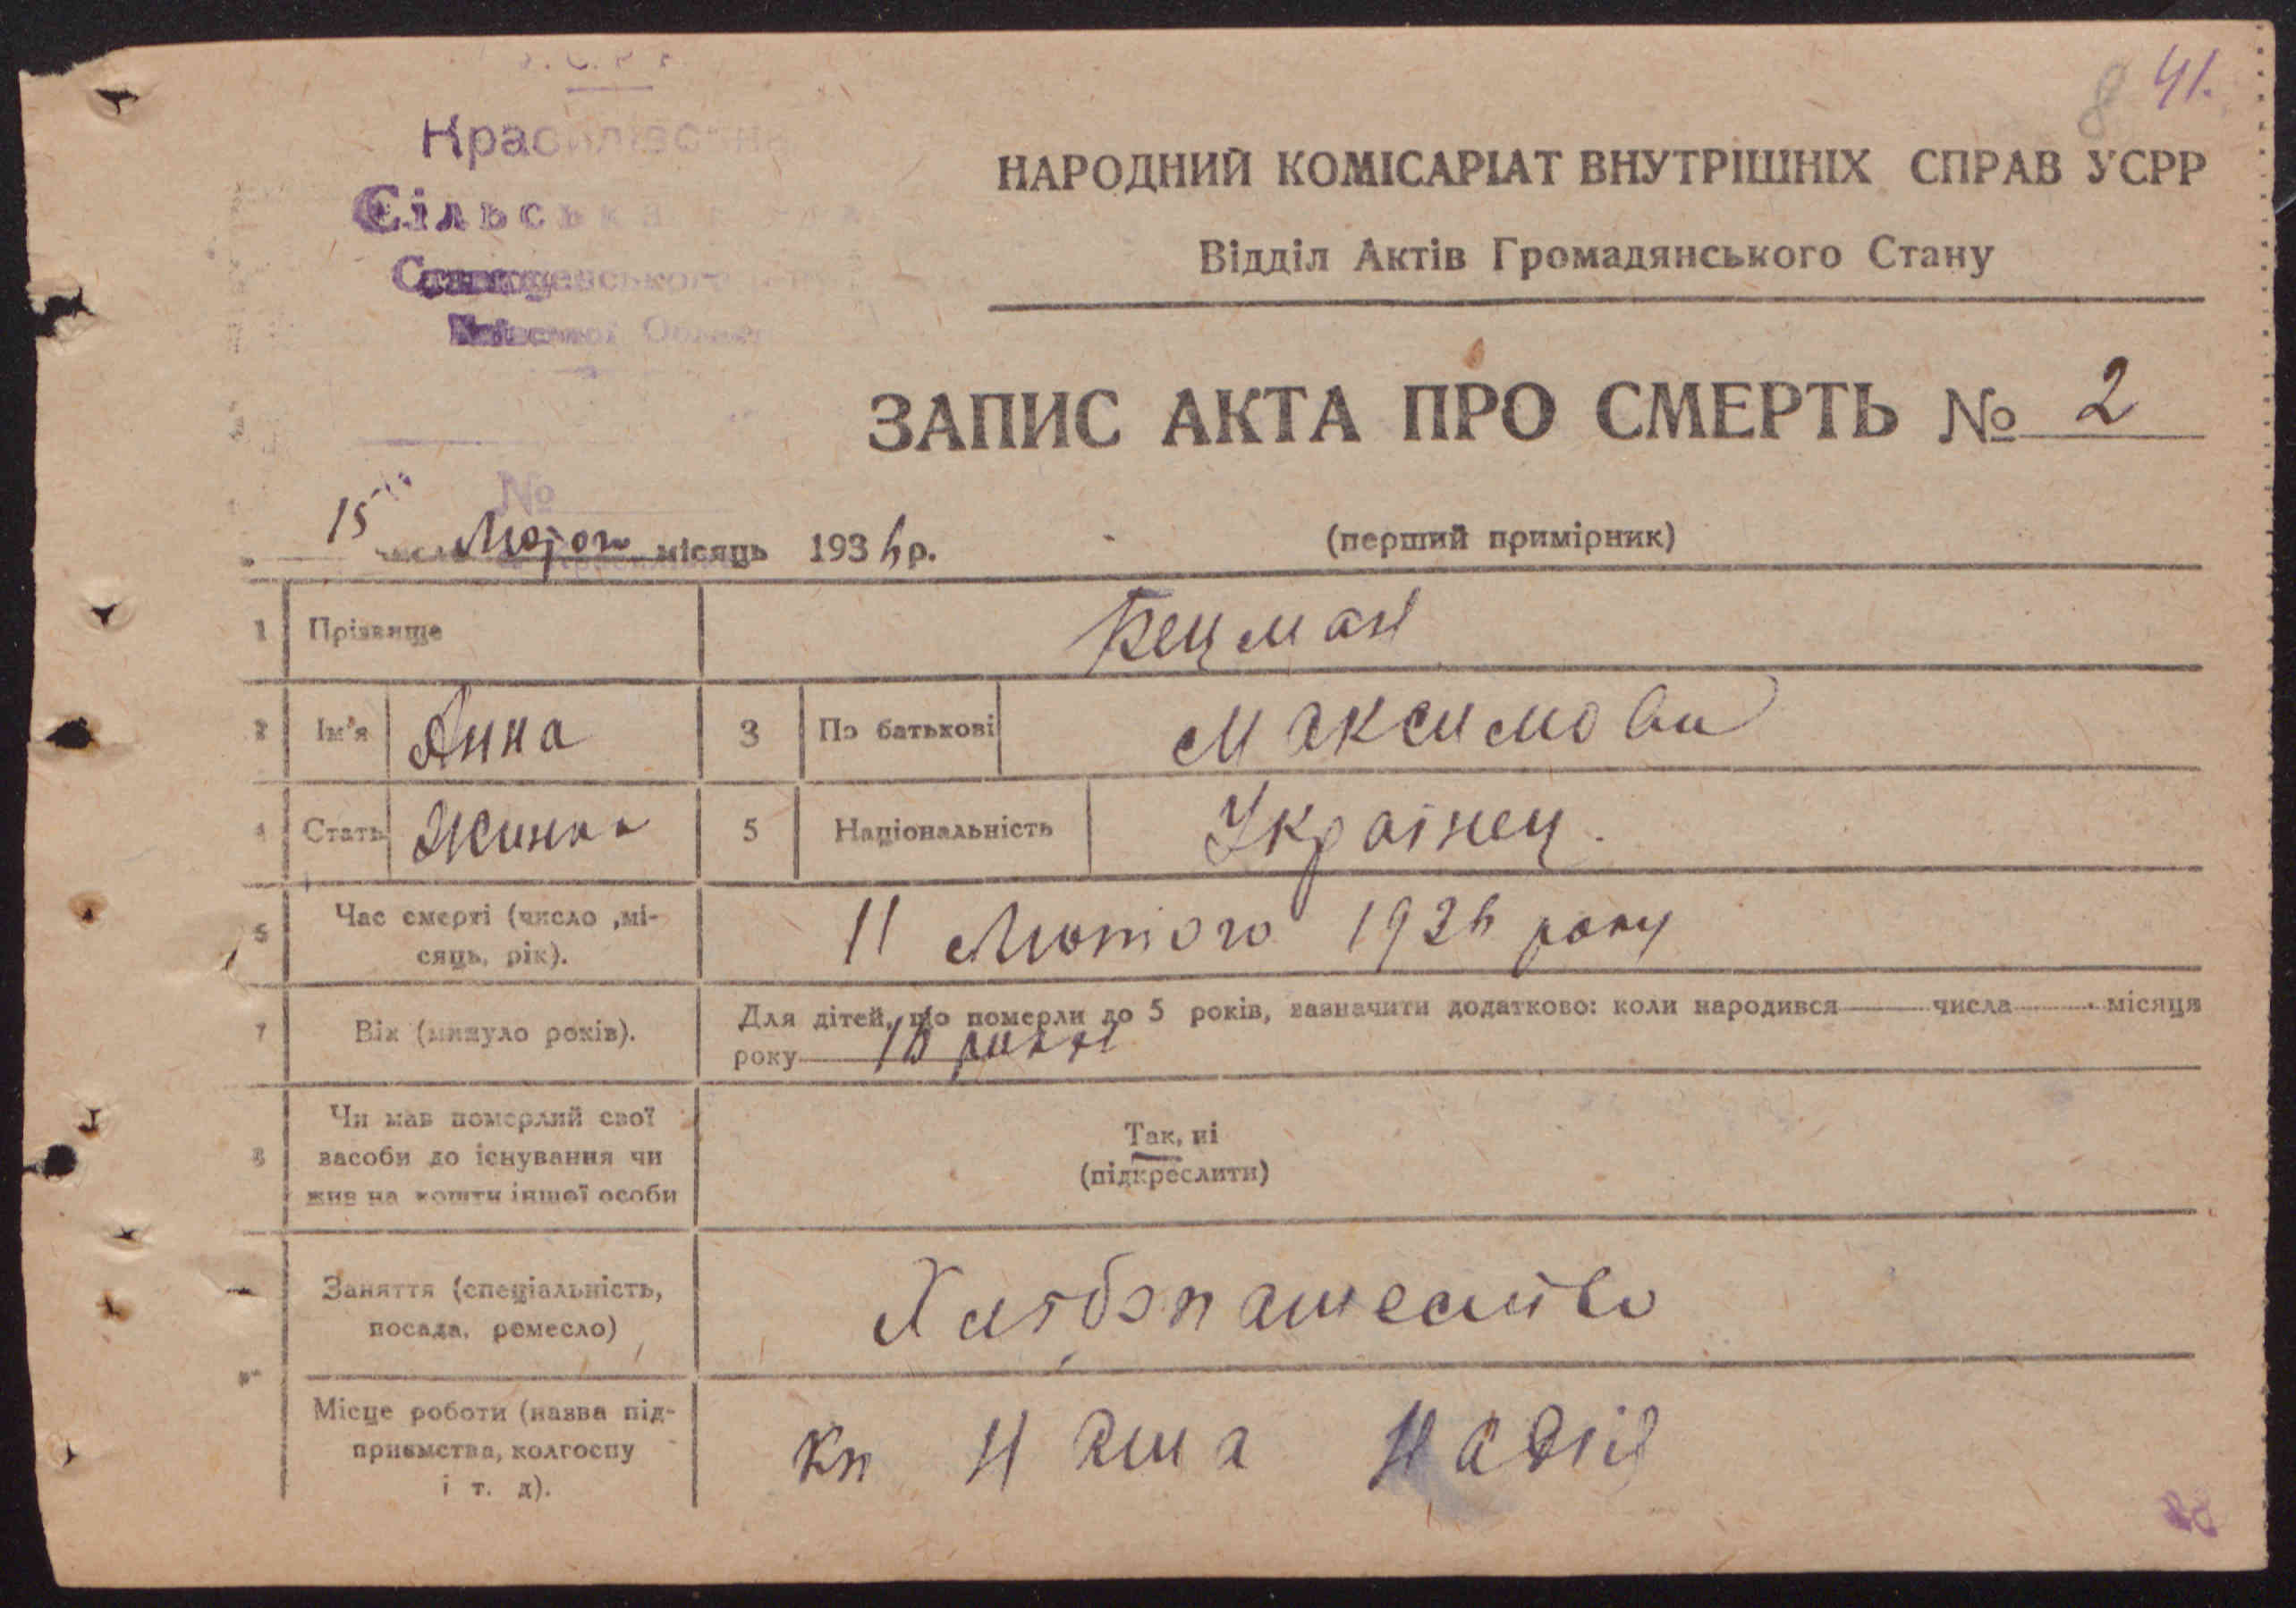 У. С. Р. Р.
8 41.
Красилівська
Сільська рада
Київської Області
НАРОДНИЙ КОМІСАРІАТ ВНУТРІШНІХ СПРАВ УСРР
Відділ Актів Громадянського Стану
ЗАПИС АКТА ПРО СМЕРТЬ № 2
№
15 числа Лютого місяць 193 р.
(перший примірник)
1 Прізвище Бецман
2 Ім'я Анна 3 По батькові Максимови
4 Стать Жинка 5 Національність Українец.
6 Час смерті (число ,мі-
сяць, рік).
11 Лютого року
7 Вік (минуло років).
Для дітей, що померли до 5 років, зазначити додатково: коли народився числа місяця
року
8 Чи мав померлий свої
засоби до існування чи
жив на кошти іншої особи
Так, ні
(підкреслити)
Заняття (спеціальність,
посада, ремесло)
Місце роботи (назва під-
приємства, колгоспу
і т. д).
кп Наша Надія